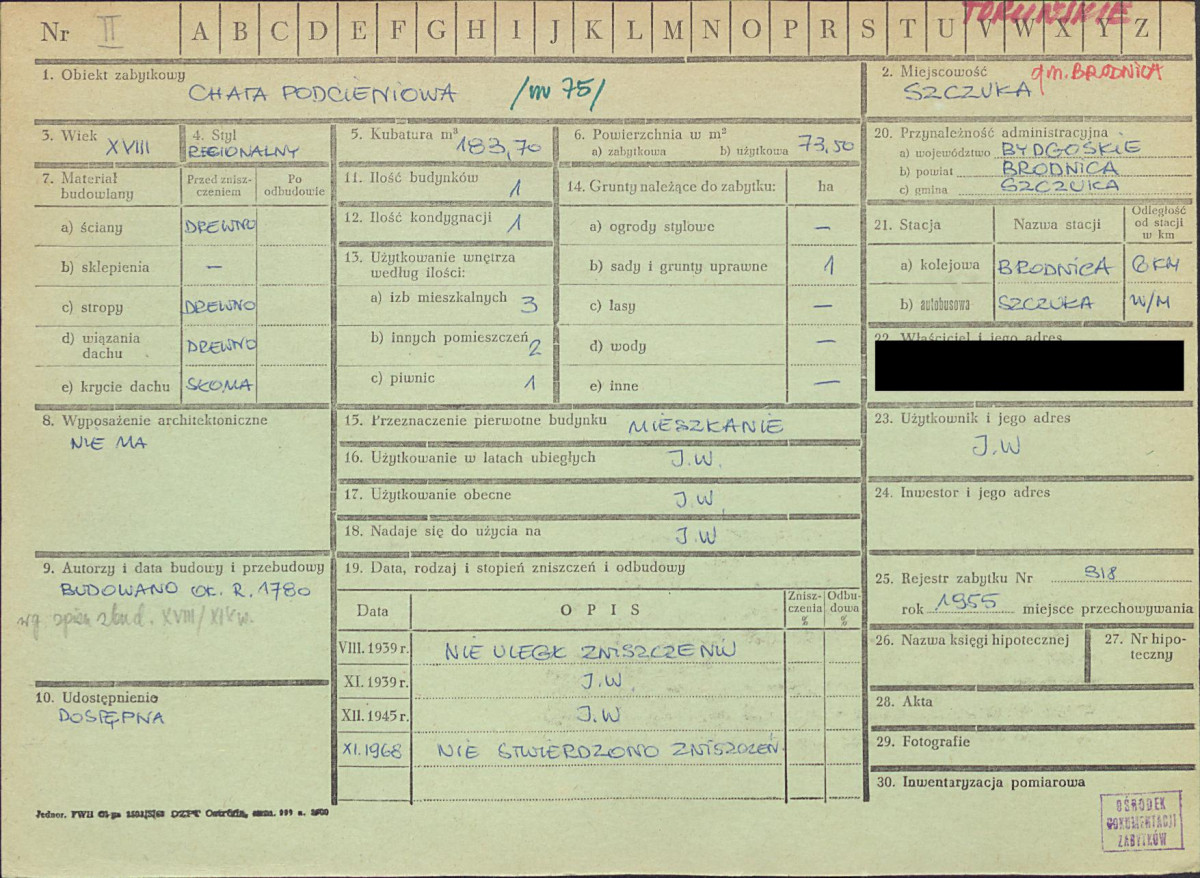 TORUŃSKIE
Nr II A B C D E F G H I J K L M N O P R S T U V W X Y Z
1. Obiekt zabytkowy
CHATA PODCIENIOWA /nr 75/
2. Miejscowość gm. BRODNICA
SZCZUKA
3. Wiek XVIII
4. Styl
REGIONALNY
5. Kubatura m³ 183,70
6. Powierzchnia w m²
a) zabytkowa b) użytkowa 73,50
7. Materiał budowlany
Przed zniszczeniem
Po odbudowie
a) ściany DREWNO
b) sklepienia —
c) stropy DREWNO
d) wiązania dachu DREWNO
e) krycie dachu SŁOMA
8. Wyposażenie architektoniczne
NIE MA
9. Autorzy i data budowy i przebudowy
BUDOWANO OK. R. 1780
XVIII/XIX w.
10. Udostępnienie
DOSTĘPNA
11. Ilość budynków 1
12. Ilość kondygnacji 1
13. Użytkowanie wnętrza
według ilości:
a) izb mieszkalnych 3
b) innych pomieszczeń 2
c) piwnic 1
14. Grunty należące do zabytku: ha
a) ogrody stylowe —
b) sady i grunty uprawne 1
c) lasy —
d) wody —
e) inne —
15. Przeznaczenie pierwotne budynku MIESZKANIE
16. Użytkowanie w latach ubiegłych J.W.
17. Użytkowanie obecne J.W.
18. Nadaje się do użycia na J.W
19. Data, rodzaj i stopień zniszczeń i odbudowy
Data OPIS Zniszczenia % Odbudowa %
VIII. 1939 r. NIE ULEGŁ ZNISZCZENIU
XI. 1939 r. J.W.
XII. 1945 r. J.W
XI. 1968 NIE STWIERDZONO ZNISZCZEŃ
20. Przynależność administracyjna
a) województwo BYDGOSKIE
b) powiat BRODNICA
c) gmina SZCZUKA
21. Stacja Nazwa stacji Odległość od stacji w km
a) kolejowa BRODNICA 6 KM
b) autobusowa SZCZUKA W/M
22. Właściciel i jego adres
23. Użytkownik i jego adres
J.W
24. Inwestor i jego adres
25. Rejestr zabytku Nr 318
rok 1955 miejsce przechowywania
26. Nazwa księgi hipotecznej
27. Nr hipoteczny
28. Akta
29. Fotografie
30. Inwentaryzacja pomiarowa
OŚRODEK
DOKUMENTACJI
ZABYTKÓW